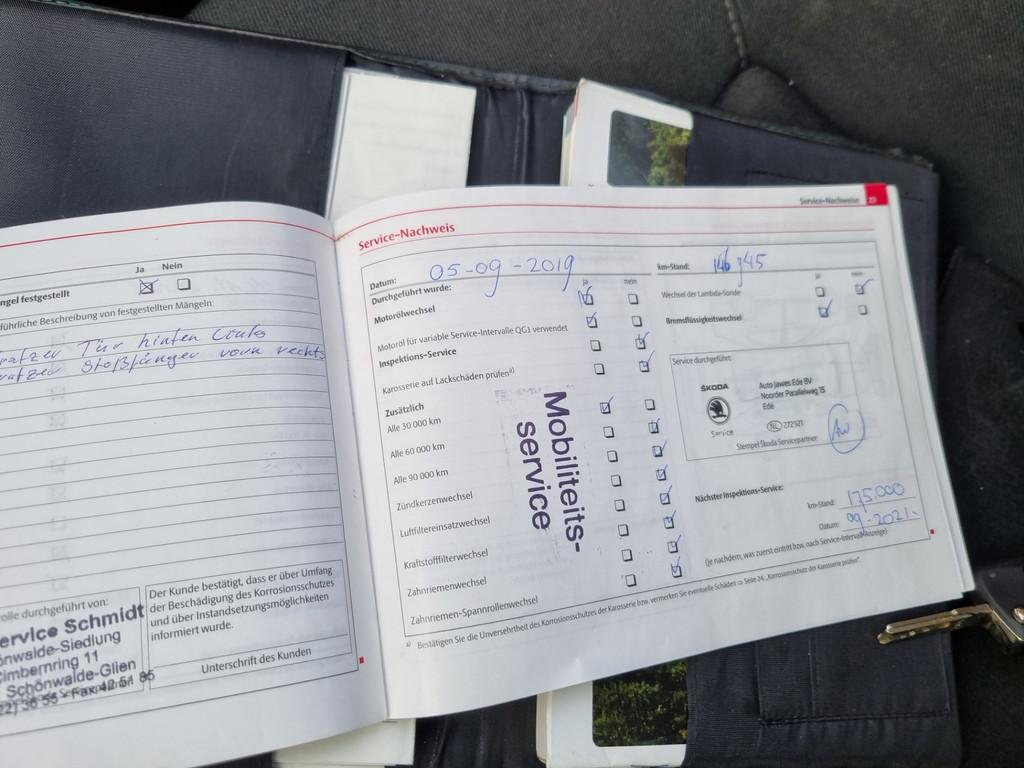 Ja Nein
ngel festgestellt
führliche Beschreibung von festgestellten Mängeln:
ratzer Tür hinten Links
ratzer Stoßfänger vorn rechts
olle durchgeführt von:
ervice Schmidt
önwalde-Siedlung
imbernring 11
Schönwalde-Glien
Der Kunde bestätigt, dass er über Umfang
der Beschädigung des Korrosionsschutzes
und über Instandsetzungsmöglichkeiten
informiert wurde.
Unterschrift des Kunden
Service-Nachweise 23
Service-Nachweis
Datum: 05-09-2019
km-Stand:
Durchgeführt wurde: ja nein
ja nein
Motorölwechsel
Wechsel der Lambda-Sonde
Motoröl für variable Service-Intervalle QG1 verwendet
Bremsflüssigkeitswechsel
Inspektions-Service
Karosserie auf Lackschäden prüfen a)
Zusätzlich
Alle 30 000 km
Alle 60 000 km
Alle 90 000 km
Zündkerzenwechsel
Luftfiltereinsatzwechsel
Kraftstofffilterwechsel
Zahnriemenwechsel
Zahnriemen-Spannrollenwechsel
Mobiliteits-
service
Service durchgeführt:
ŠKODA
Service
Auto Jawes Ede BV
Noorder Parallelweg 15
Ede
NL 272521
Stempel Škoda Servicepartner
AW
Nächster Inspektions-Service:
km-Stand: 175.000
Datum: 09-2021-
(je nachdem, was zuerst eintritt bzw. nach Service-Intervall-Anzeige)
a) Bestätigen Sie die Unversehrtheit des Korrosionsschutzes der Karosserie bzw. vermerken Sie eventuelle Schäden ⇒ Seite 24, „Korrosionsschutz der Karosserie prüfen".